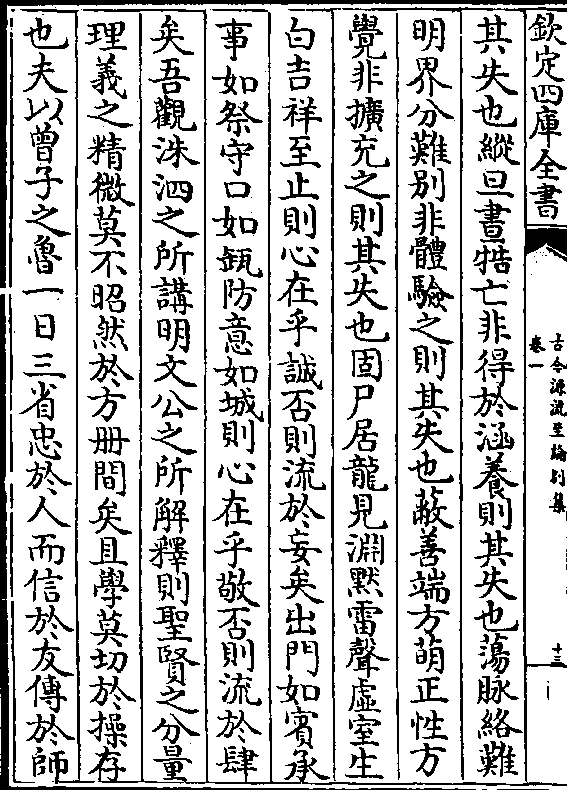 欽定四庫全書
古今源流至論別集
卷一
十三
其失也縱旦晝牿亡非得於涵養則其失也蕩脉絡難
明界分難別非體驗之則其失也蔽善端方萌正性方
覺非擴充之則其失也固尸居龍見淵默雷聲虛室生
白吉祥至止則心在乎誠否則流於妄矣出門如賓承
事如祭守口如瓶防意如城則心在乎敬否則流於肆
矣吾觀洙泗之所講明文公之所解釋則聖賢之分量
理義之精微莫不昭然於方冊間矣且學莫切於操存
也夫以曾子之魯一日三省忠於人而信於友傳於師